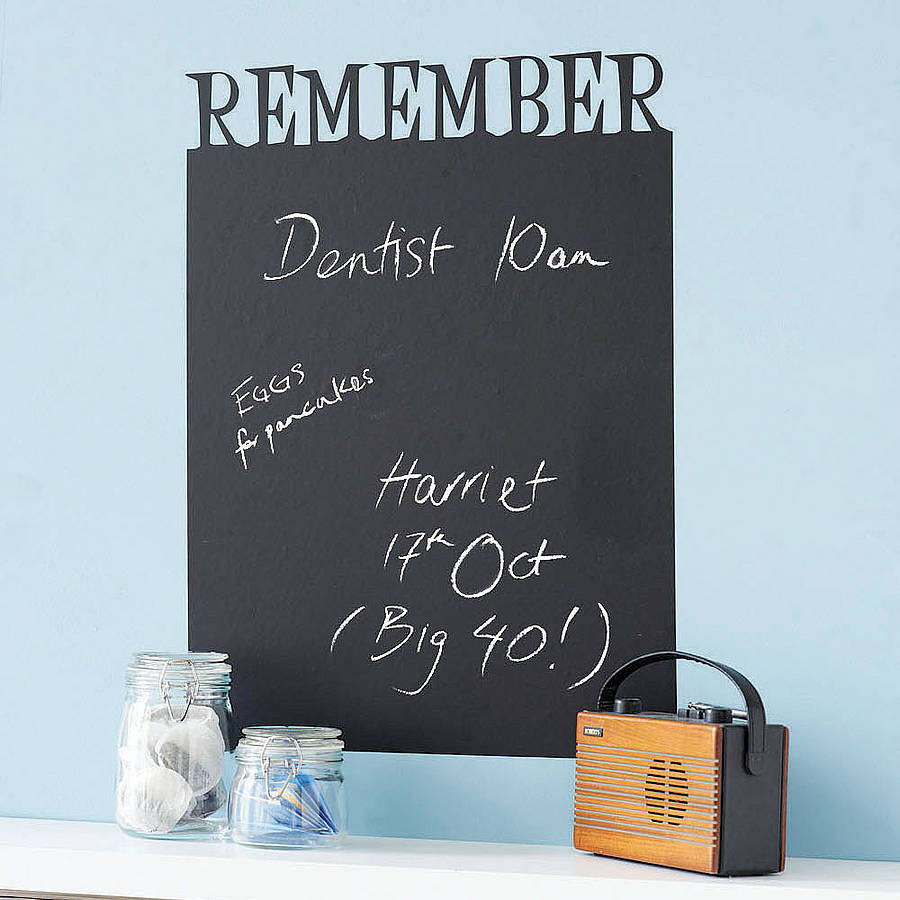 REMEMBER
Dentist 10am
EGGS
for pancakes
Harriet
17th Oct
(Big 40!)
ROBERTS